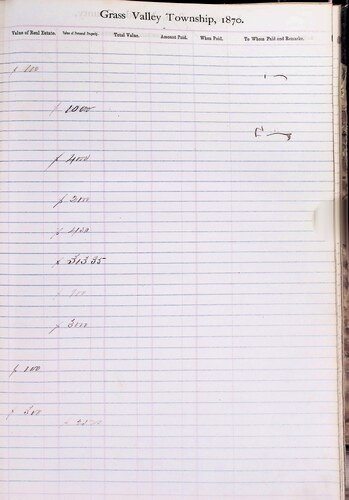 Grass Valley Township, 1870.
Value of Real Estate. Value of Personal Property. Total Value. Amount Paid. When Paid. To Whom Paid and Remarks.
1000
4000
2000
31335
3000
100
500